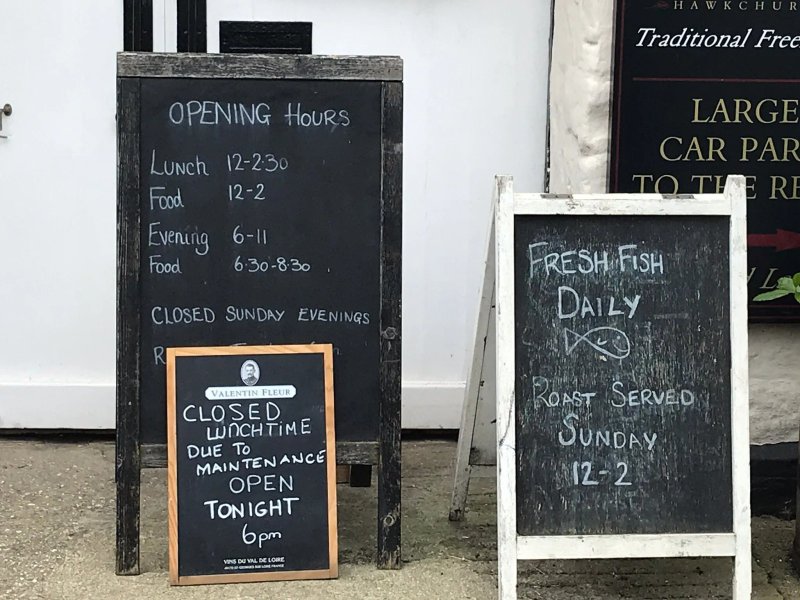 OPENING HOURS
LUNCH 12-2·30
Food 12-2
Evening 6-11
Food 6·30-8·30
CLOSED SUNDAY EVENINGS
VALENTIN FLEUR
CLOSED
LUNCHTIME
DUE TO
MAINTENANCE
OPEN
TONIGHT
6pm
VINS DU VAL DE LOIRE
FRESH FISH
DAILY
ROAST SERVED
SUNDAY
12-2
HAWKCHUR
Traditional Free
LARGE
CAR PAR
TO THE RE